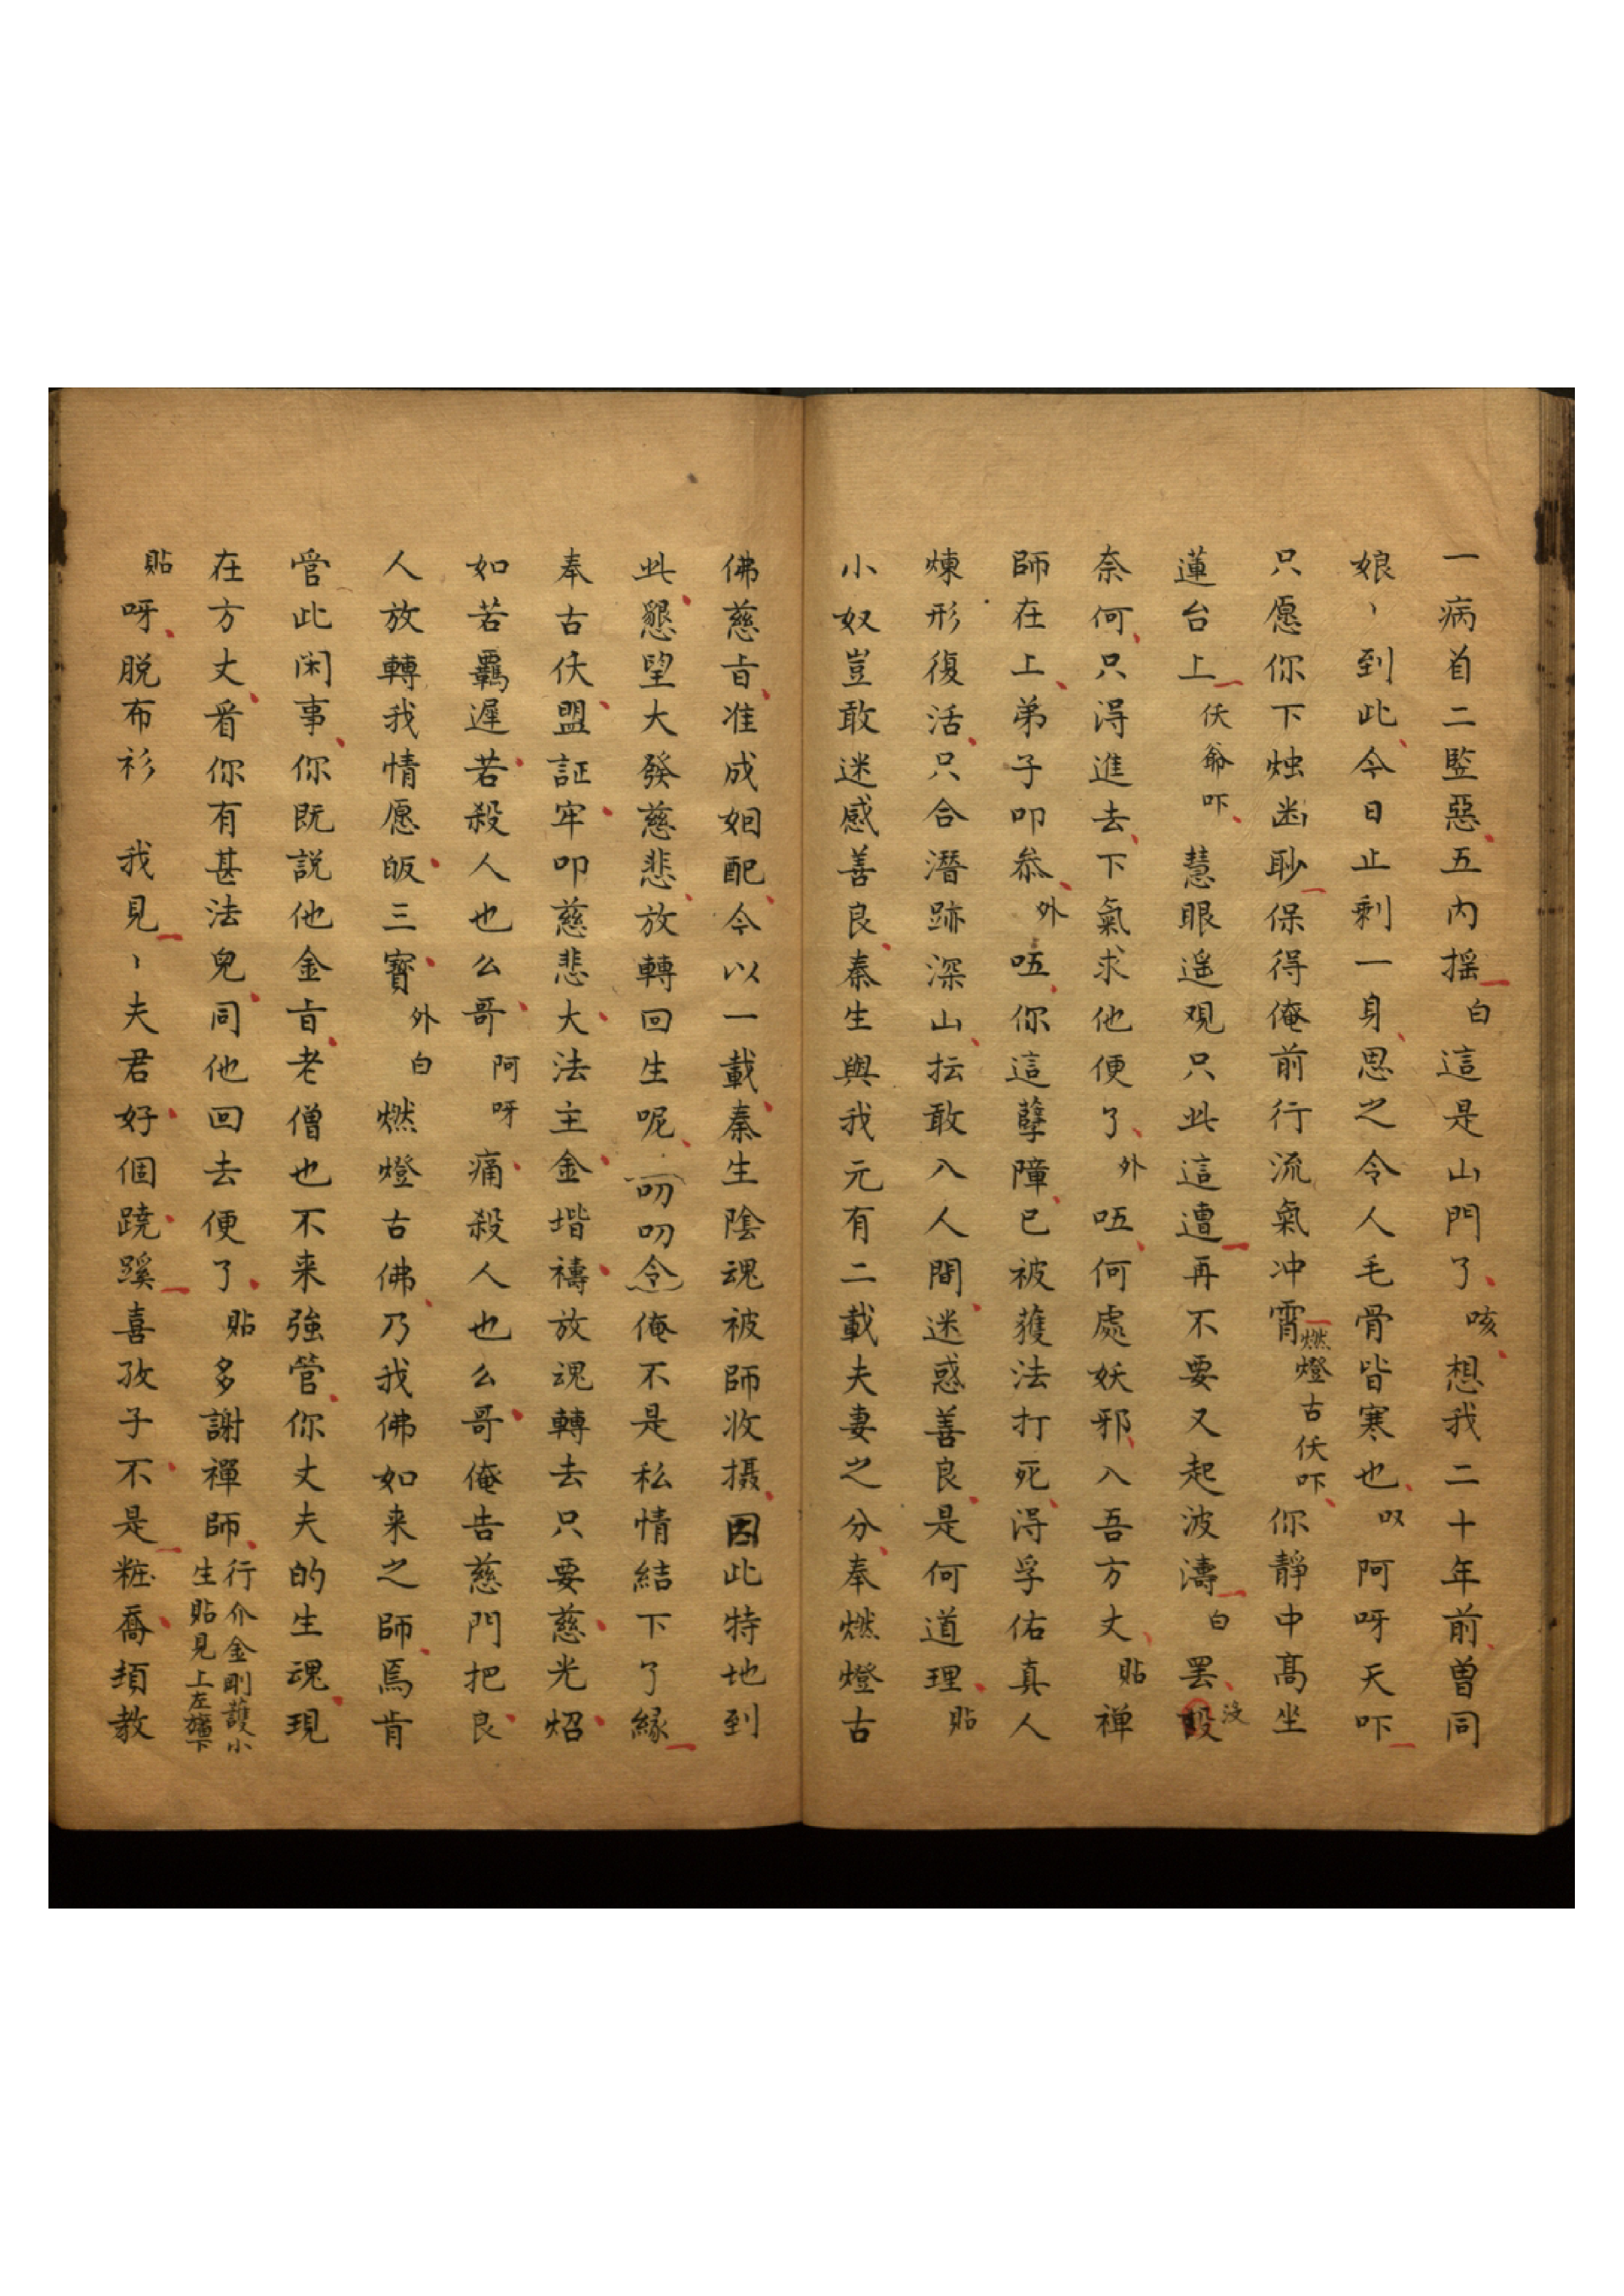 一病首二監惡五內揺白這是山門了咳想我二十年前曽同
娘〻到此今日止剩一身思之令人毛骨皆寒也収阿呀天吓
只愿你下燭幽耿保得俺前行流氣冲霄燃燈古仸吓你靜中髙坐
蓮台上仸爺吓慧眼遥观只此這遭再不要又起波濤白罢沒
奈何只淂進去下氣求他便了外唔何處妖邪入吾方丈貼禅
師在上弟子叩叅外唔你這孽障已被獲法打死淂孚佑真人
煉形復活只合潛跡深山抎敢入人間迷惑善良是何道理貼
小奴豈敢迷感善良秦生與我元有二載夫妻之分奉燃燈古
佛慈㫖准成姻配今以一載秦生陰魂被師收摄因此特地到
此懇望大發慈悲放轉回生呢叨叨令俺不是私情結下了緣
奉古仸盟証牢叩慈悲大法主金堦禱放魂轉去只要慈光炤
如若羈遲若殺人也么哥阿呀痛殺人也么哥俺告慈門把良
人放轉我情愿皈三寳外白燃燈古佛乃我佛如来之師焉肯
管此闲事你既説他金㫖老僧也不来強管你丈夫的生魂現
在方丈看你有甚法兒同他回去便了貼多謝禪師行介金剛護小生貼見上左旋下
貼呀脱布衫我見〻夫君好個蹺蹊喜孜子不是粧喬頊教